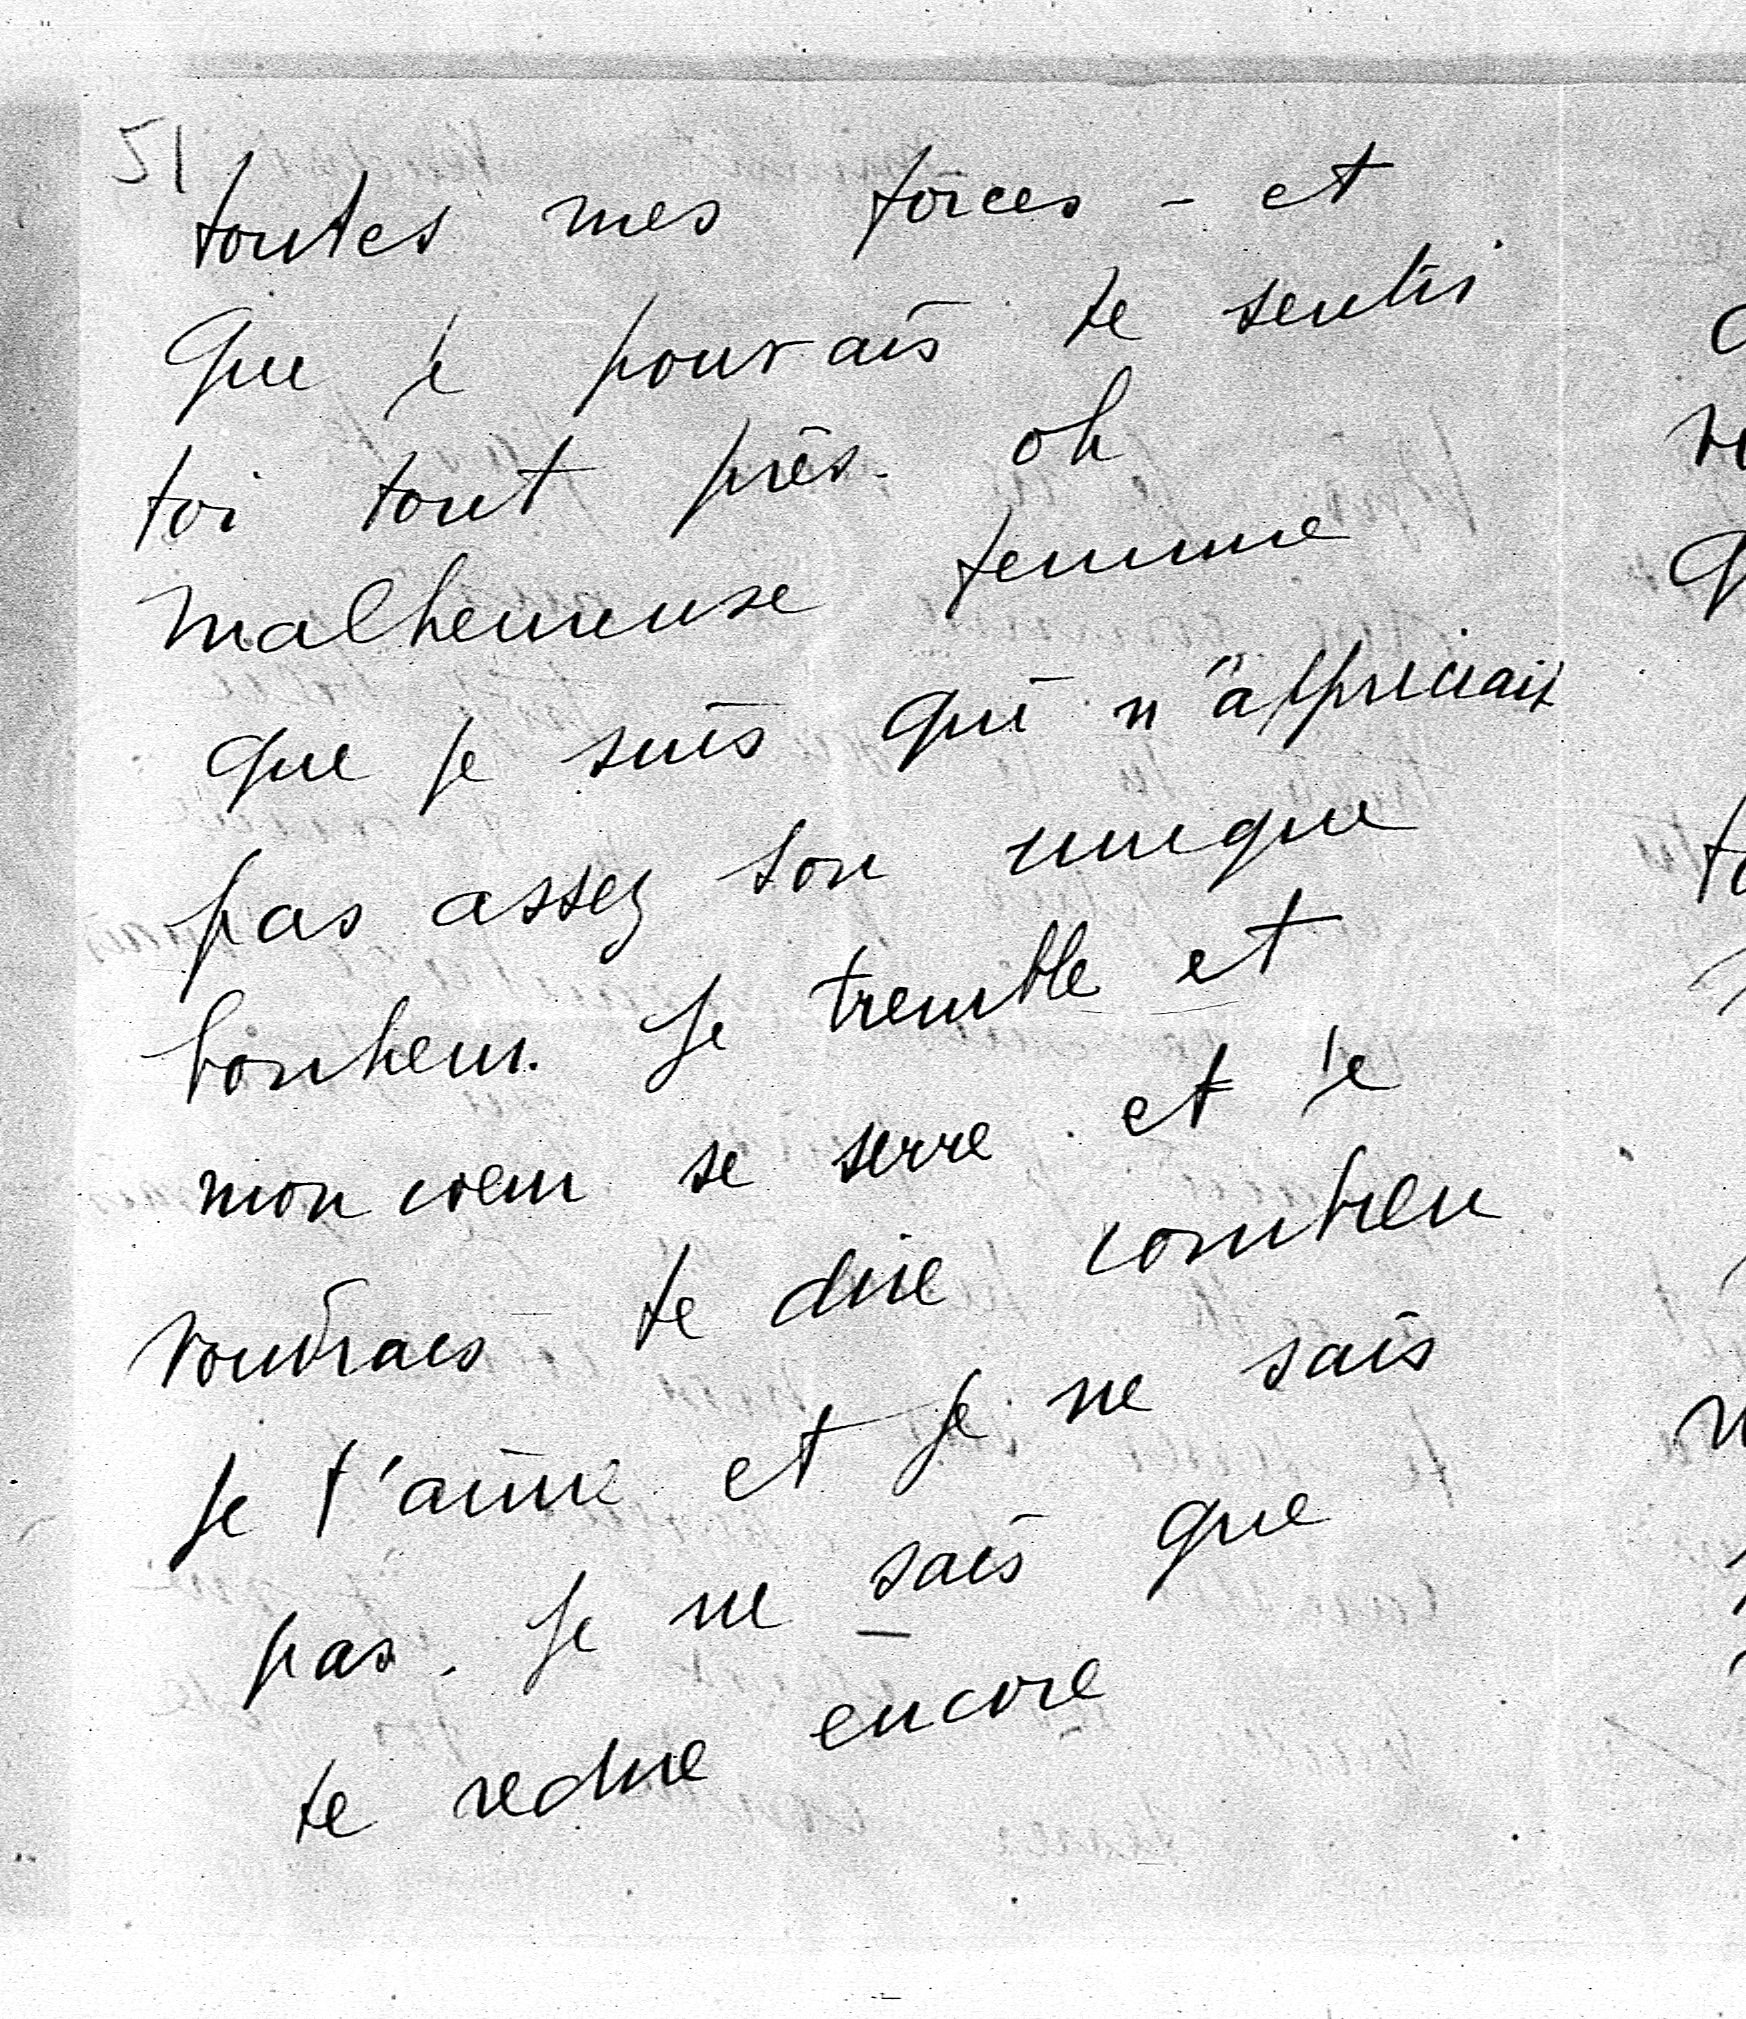 51
toutes mes forces - et
que je pouvais te sentir
toi tout près. oh
malheureuse femme
que je suis qui n'appreciait
pas assez son unique
bonheur. Je tremble et
mon coeur se serre et je
voudrais te dire combien
je t'aime et je ne sais
pas. Je ne sais que
te redire encore